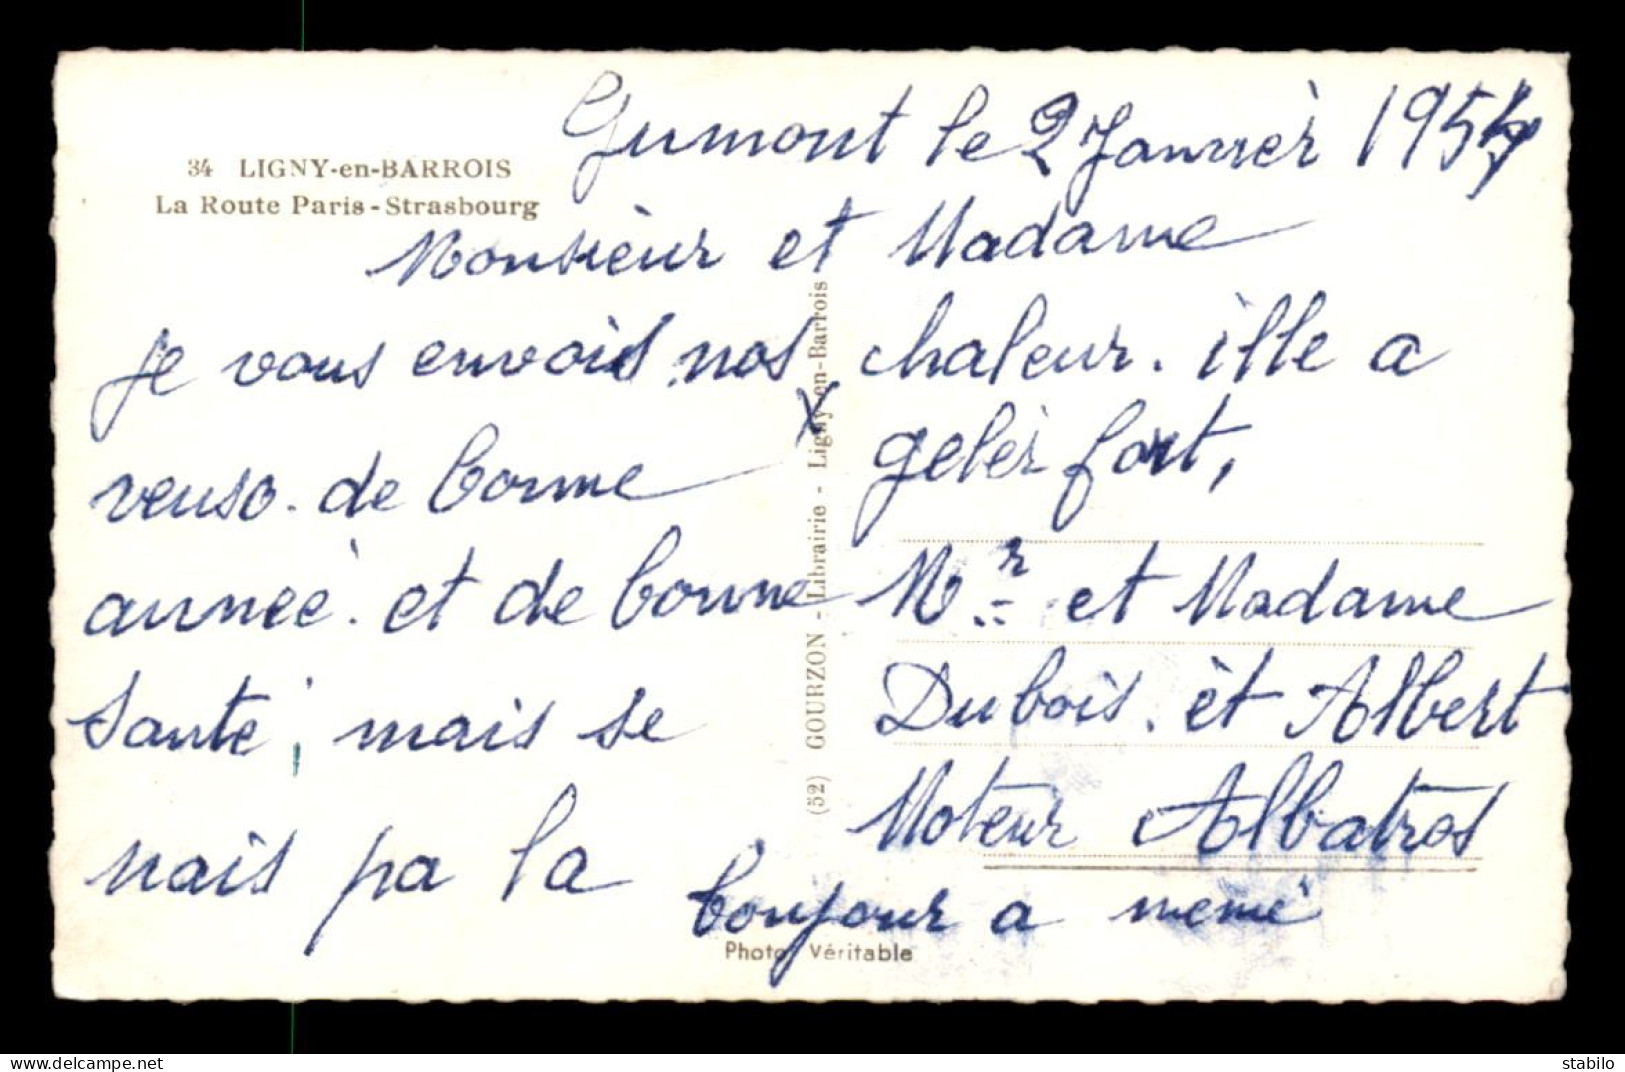 34 LIGNY-en-BARROIS
La Route Paris-Strasbourg
Gumont le 2 Janvier 195
Monsieur et Madame
je vous envois nos
veuso. de bonne
année. et de bonne
Sante, mais se
nais pa la
chaleur. ille a
gelér fort,
Mr et Madame
Dubois. et Albert
Moteur Albatros
bonjour a memé
(52) GOURZON - Librairie - Ligny-en-Barrois
Photo Véritable
www.delcampe.net
stabilo